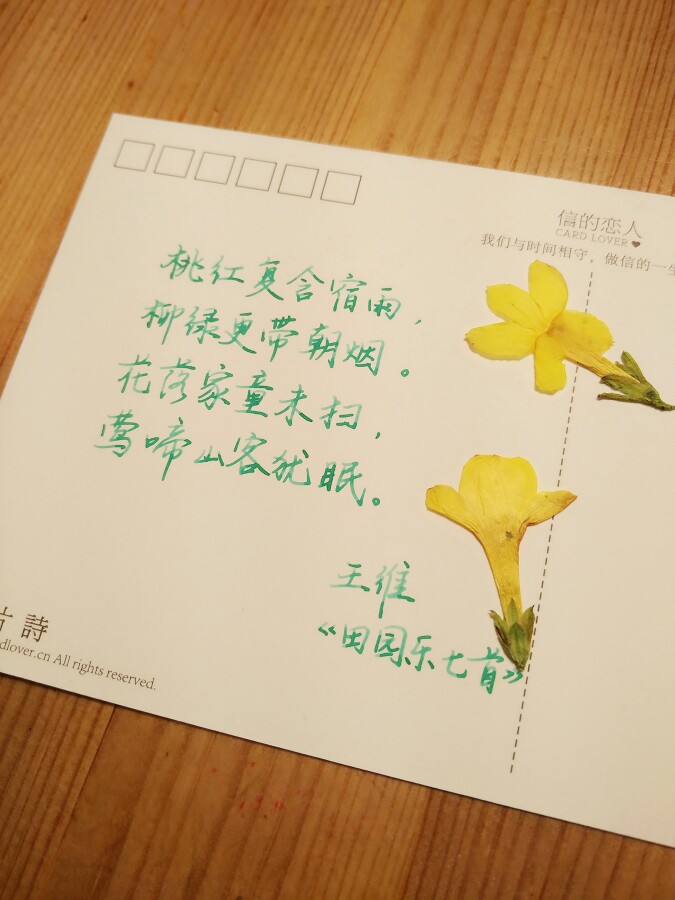 信的恋人
CARD LOVER
我们与时间相守，做信的一生
桃红复含宿雨，
柳绿更带朝烟。
花落家童未扫，
莺啼山客犹眠。
王维
《田园乐七首》
片詩
dlover.cn All rights reserved.